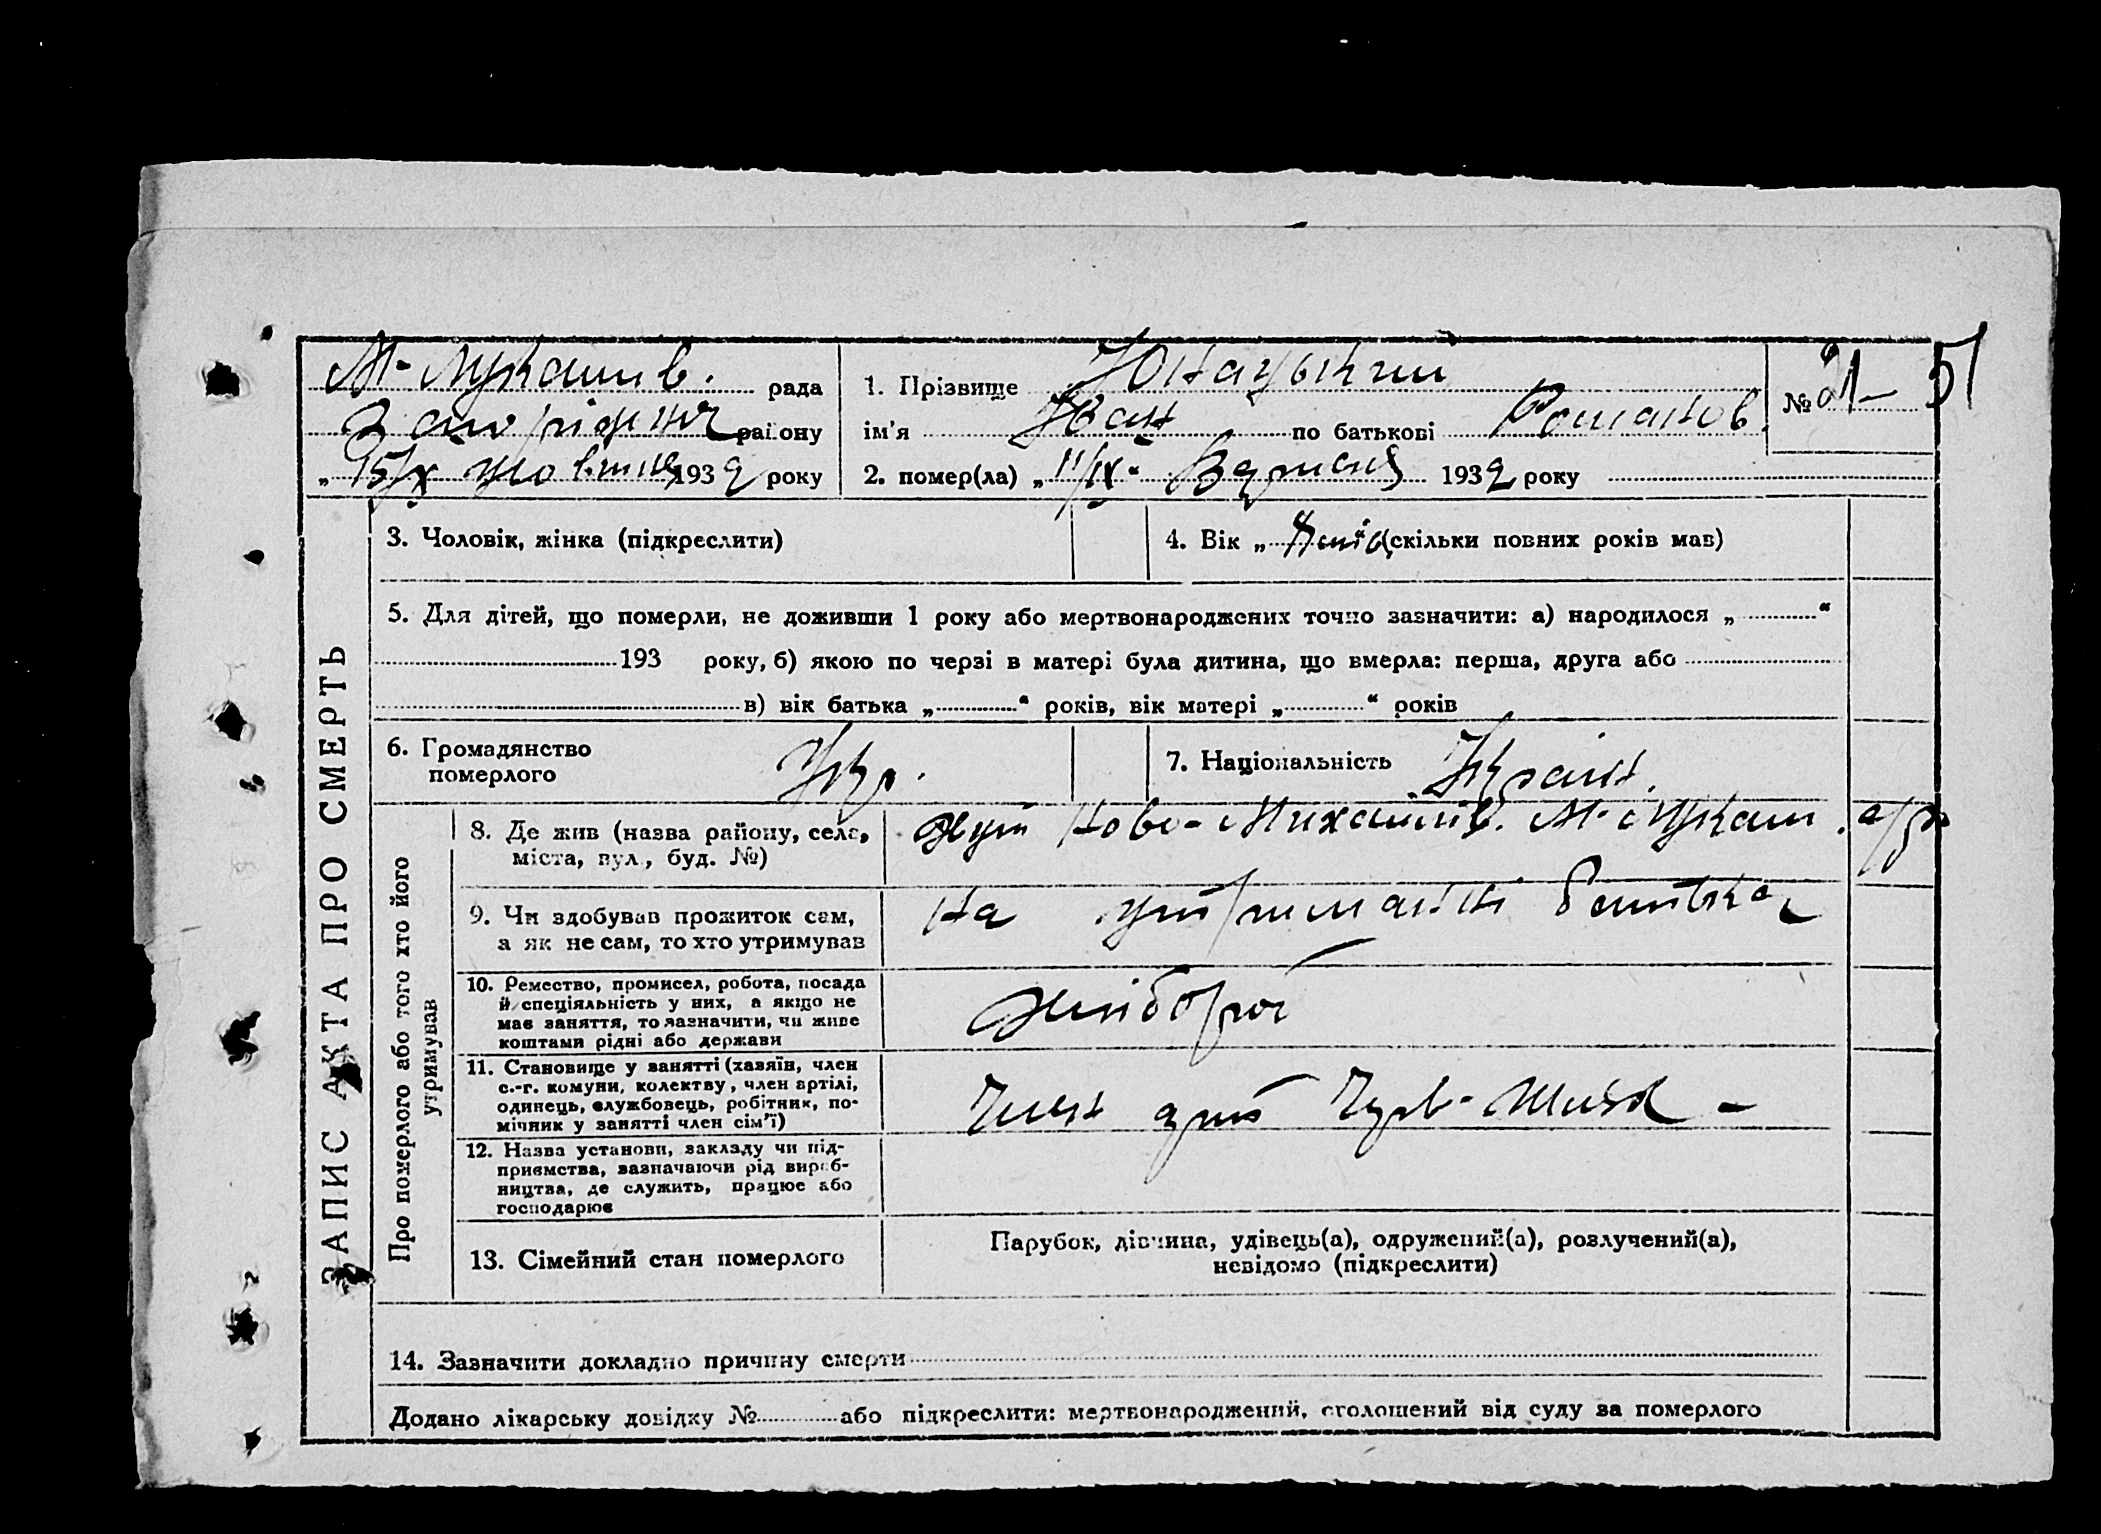 М-Лукашів. рада
Запоріжж району
„15/X жовтня 1932 року
1. Прізвище
ім'я Іван по батькові Романов.
№ 21- 51
2. помер(ла) „11/IX“ Вересня 1932 року
ЗАПИС АКТА ПРО СМЕРТЬ
3. Чоловік, жінка (підкреслити)
4. Вік „ (скільки повних років мав)
5. Для дітей, що померли, не доживши 1 року або мертвонароджених точно зазначити: а) народилося „ “
193 року, б) якою по черзі в матері була дитина, що вмерла: перша, друга або
в) вік батька „ “ років, вік матері „ “ років
6. Громадянство
померлого Укр.
7. Національність Україн.
Про померлого або того хто його
утримував
8. Де жив (назва району, села,
міста, вул., буд. №)
Хут Ново-Михайлів. М-Лукаш.
9. Чи здобував прожиток сам,
а як не сам, то хто утримував
на утриманні батька
10. Ремество, промисел, робота, посада
й спеціяльність у них, а якщо не
мав заняття, то зазначити, чи живе
коштами рідні або держави
хлібороб
11. Становище у занятті (хазяїн, член
с.-г. комуни, колективу, член артілі,
одинець, службовець, робітник, по-
мічник у занятті член сім'ї)
Член арт Черв-Маяк -
12. Назва установи, закладу чи під-
приємства, зазначаючи рід вироб-
ництва, де служить, працює або
господарює
13. Сімейний стан померлого
Парубок, дівчина, удівець(а), одружений(а), розлучений(а),
невідомо (підкреслити)
14. Зазначити докладно причину смерти
Додано лікарську довідку № або підкреслити: мертвонароджений, оголошений від суду за померлого